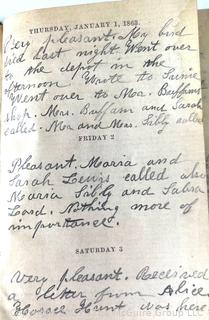 THURSDAY, JANUARY 1, 1863.
Very pleasant. My bird
died last night Went over
to the depot in the
afternoon Wrote to
Went over to Mr. Buffums
shop. Mrs. Buffam and Sarah
called. Mr and Mrs. Sibly called
FRIDAY 2
Pleasant. Maria and
Sarah Lewis called also
Maria Sibly and
Lord. Nothing more of
importance.
SATURDAY 3
Very pleasant. Received
a letter from Alice.
Horace Hunt was here.